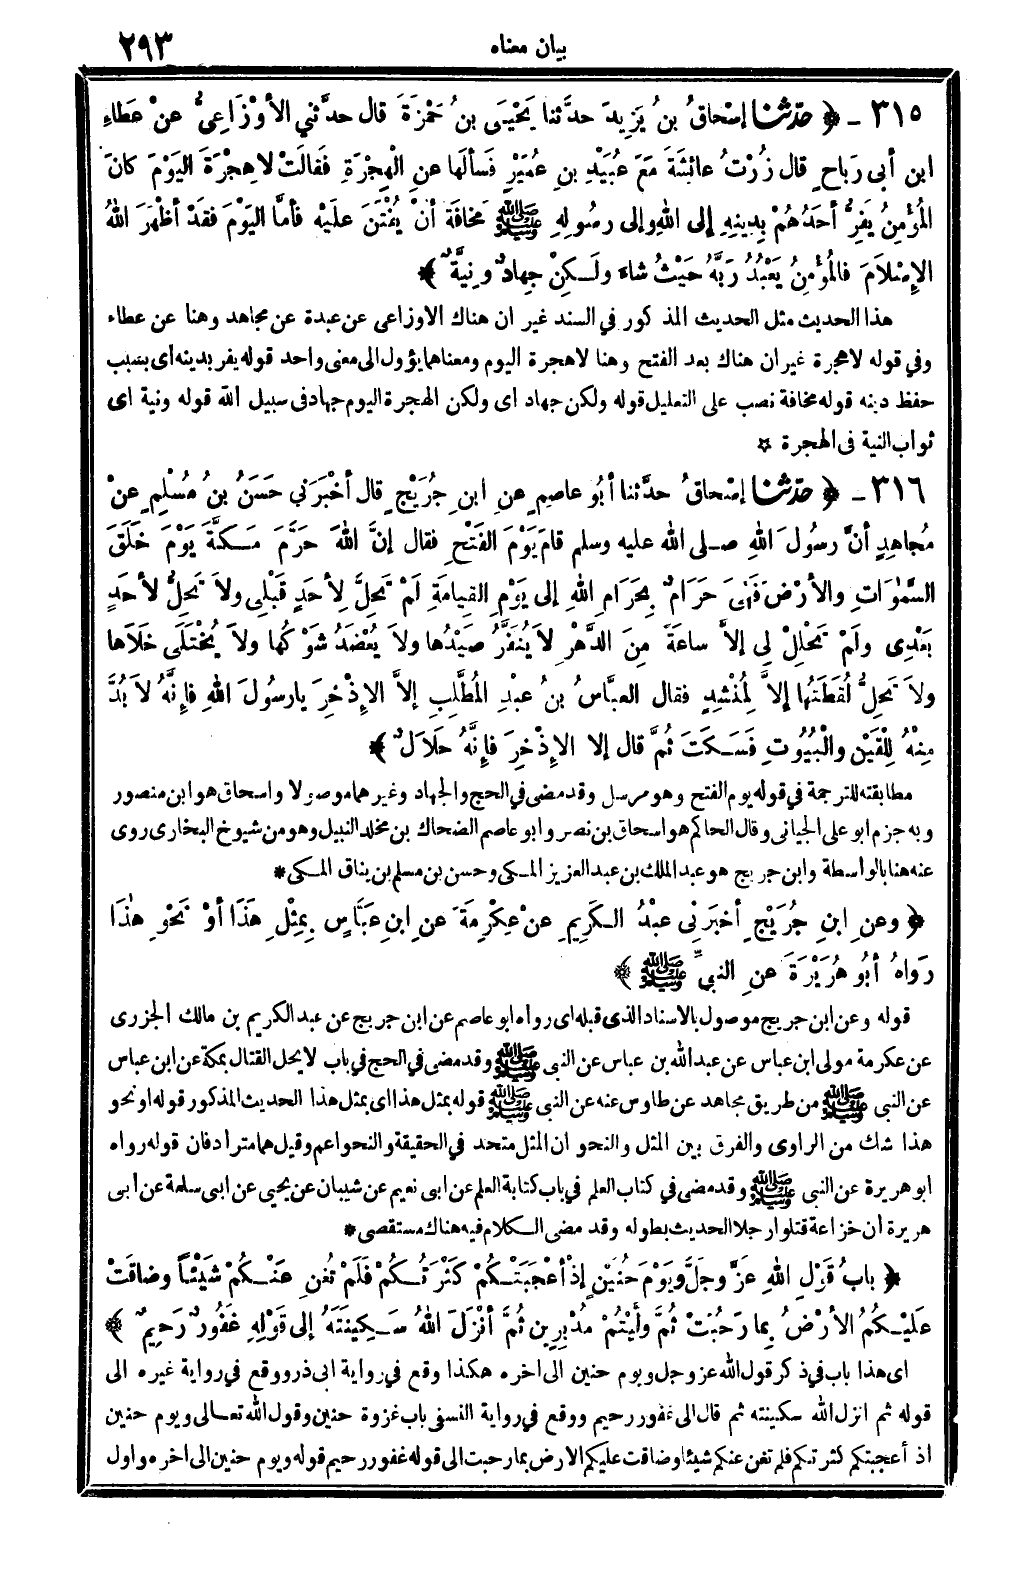 بيان معناه ٢٩٣
٣١٥ - ﴿ حدّثنا إسْحاقُ بنُ يَزِيدَ حدَّثنا يَحْيَى بنُ حَمْزَةَ قال حدَّثني الأوْزَاعِيُّ عنْ عَطاءِ
ابن أبى رَباحٍ قال زُرْتُ عائشَةَ مَعَ عُبَيْدِ بنِ عُمَيْرٍ فَسألَها عنِ الْهِجْرَةِ فَقالَتْ لاهِجْرَةَ اليَوْمَ كانَ
المُؤْمِنُ يَفِرُّ أحدُهُمْ بِدينِهِ إلى اللهِ وإلى رسُولِهِ ﷺ مَخافَةَ أنْ يُفْتَنَ علَيْهِ فأمَّا اليَوْمَ فَقَدْ أظْهَرَ اللهُ
الإِسْلَامَ فالمُؤْمِنُ يَعْبُدُ رَبَّهُ حَيْثُ شاءَ ولَـكِنْ جِهادٌ ونِيَّةٌ ﴾
هذا الحديث مثل الحديث المذكور في السند غير ان هناك الاوزاعى عن عبدة عن مجاهد وهنا عن عطاء
وفي قوله لاهجرة غير ان هناك بعد الفتح وهنا لاهجرة اليوم ومعناهما يؤول الى معنى واحد قوله يفر بدينه اى بسبب
حفظ دينه قوله مخافة نصب على التعليل قوله ولكن جهاد اى ولكن الهجرة اليوم جهاد فى سبيل الله قوله ونية اى
ثواب النية فى الهجرة ✡
٣١٦ - ﴿ حدّثنا إسْحاقُ حدَّثنا أبُو عاصِمٍ عنِ ابنِ جُرَيْجٍ قال أخْبَرَنى حَسَنُ بنُ مُسْلِمٍ عنْ
مُجاهِدٍ أنَّ رسُولَ اللهِ صـلى الله عليه وسلم قامَ يَوْمَ الفَتْحِ فقال إنَّ اللهَ حَرَّمَ مَـكَّةَ يَوْمَ خَلَقَ
السَّمٰوَاتِ والأرْضَ فَهْىَ حَرَامٌ بِحَرَامِ اللهِ إلى يَوْمِ القِيامَةِ لَمْ تَحِلَّ لِأحَدٍ قَبْلِى ولاَ تَحِلُّ لأحَدٍ
بَعْدِى ولَمْ تَحْلِلْ لِي إلاَّ ساعَةً مِنَ الدَّهْرِ لاَ يُنَفَّرُ صَيْدُها ولاَ يُعْضَدُ شَوْكُها ولاَ يُخْتَلَى خَلَاها
ولاَ تَحِلُّ لُقَطَتُها إلاَّ لِمُنْشِدٍ فقال العبَّاسُ بنُ عبْدِ المُطَّلِبِ إلاَّ الإذْخِرَ يارسُولَ اللهِ فإنَّهُ لاَ بُدَّ
مِنْهُ لِلْقَيْنِ والْبُيُوتِ فَسَـكَتَ ثُمَّ قال إلا الإذْخِرَ فإنَّهُ حَلَالٌ ﴾
مطابقته للترجمة في قوله يوم الفتح وهو مرسل وقد مضى في الحج والجهاد وغيرهما موصولا واسحاق هو ابن منصور
وبه جزم ابو على الجيانى وقال الحاكم هو اسحاق بن نصر وابو عاصم الضحاك بن مخلد النبيل وهو من شيوخ البخارى روى
عنه هنا بالواسطة وابن جريج هو عبد الملك بن عبد العزيز المـكى وحسن بن مسلم بن يناق المـكى *
﴿ وعنِ ابنِ جُرَيْجٍ أخبَرَنى عبْدُ الـكَرِيمِ عنْ عِكْرِمَةَ عنِ ابنِ عبَّاسٍ بِمِثْلِ هَذَا أوْ نَحْوِ هٰذَا
رَوَاهُ أبُو هُرَيْرَةَ عنِ النبيِّ ﷺ ﴾
قوله وعن ابن جريج موصول بالاسناد الذى قبله اى رواه ابو عاصم عن ابن جريج عن عبد الكريم بن مالك الجزرى
عن عكرمة مولى ابن عباس عن عبد الله بن عباس عن النبى ﷺ وقد مضى في الحج في باب لا يحل القتال بمكة عن ابن عباس
عن النبي ﷺ من طريق مجاهد عن طاوس عنه عن النبى ﷺ قوله بمثل هذا اى بمثل هذا الحديث المذكور قوله او نحو
هذا شك من الراوى والفرق بين المثل والنحو ان المثل متحد في الحقيقة والنحو اعم وقيل هما مترادفان قوله رواه
ابو هريرة عن النبى ﷺ وقد مضى في كتاب العلم في باب كتابة العلم عن ابى نعيم عن شيبان عن يحيى عن ابى سلمة عن ابى
هريرة أن خزاعة قتلوا رجلا الحديث بطوله وقد مضى الـكلام فيه هناك مستقصى *
﴿ بابُ قَوْلِ اللهِ عزَّ وجلَّ ويَوْمَ حُنَيْنٍ إذْ أعْجَبَتْـكُمْ كَثْرَتُـكُمْ فَلَمْ تُغْنِ عَنْـكُمْ شَيْئاً وضاقَتْ
علَيْـكُمُ الأرْضُ بِما رَحُبَتْ ثُمَّ ولَّيْتُمْ مُدْبِرِين ثُمَّ أنْزَلَ اللهُ سَـكِينَتَهُ إلى قَوْلِهِ غَفُورٌ رَحِيمٌ ﴾
اى هذا باب في ذكر قول الله عز وجل ويوم حنين الى اخره هكذا وقع في رواية ابى ذر ووقع في رواية غيره الى
قوله ثم انزل الله سكينته ثم قال الى غفور رحيم ووقع في رواية النسفى باب غزوة حنين وقول الله تعـالى ويوم حنين
اذ أعجبتكم كثرتـكم فلم تغن عنكم شيئا وضاقت عليكم الارض بما رحبت الى قوله غفور رحيم قوله ويوم حنين الى اخره واول